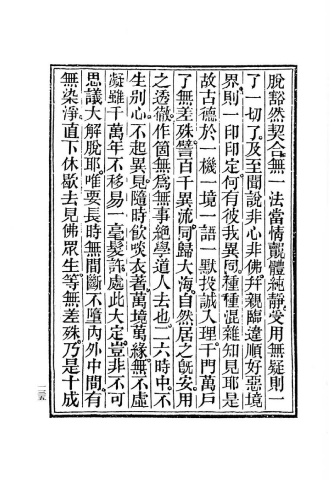 脫豁然契合無一法當情覿體純靜受用無疑則一
了一切了及至聞說非心非佛并親臨違順好惡境
界則一印印定何有彼我異同種種混雜知見耶是
故古德於一機一境一語一默投誠入理千門萬戶
了無差殊譬百千異流同歸大海自然居之旣安用
之透徹作箇無爲無事絕學道人去也二六時中不
生別心不起異見隨時飮啖衣著萬境萬緣無不虛
凝雖千萬年不移易一毫髮許處此大定豈非不可
思議大解脫耶唯要長時無間斷不墮內外中間有
無染淨直下休歇去見佛眾生等無差殊乃是十成
二三五